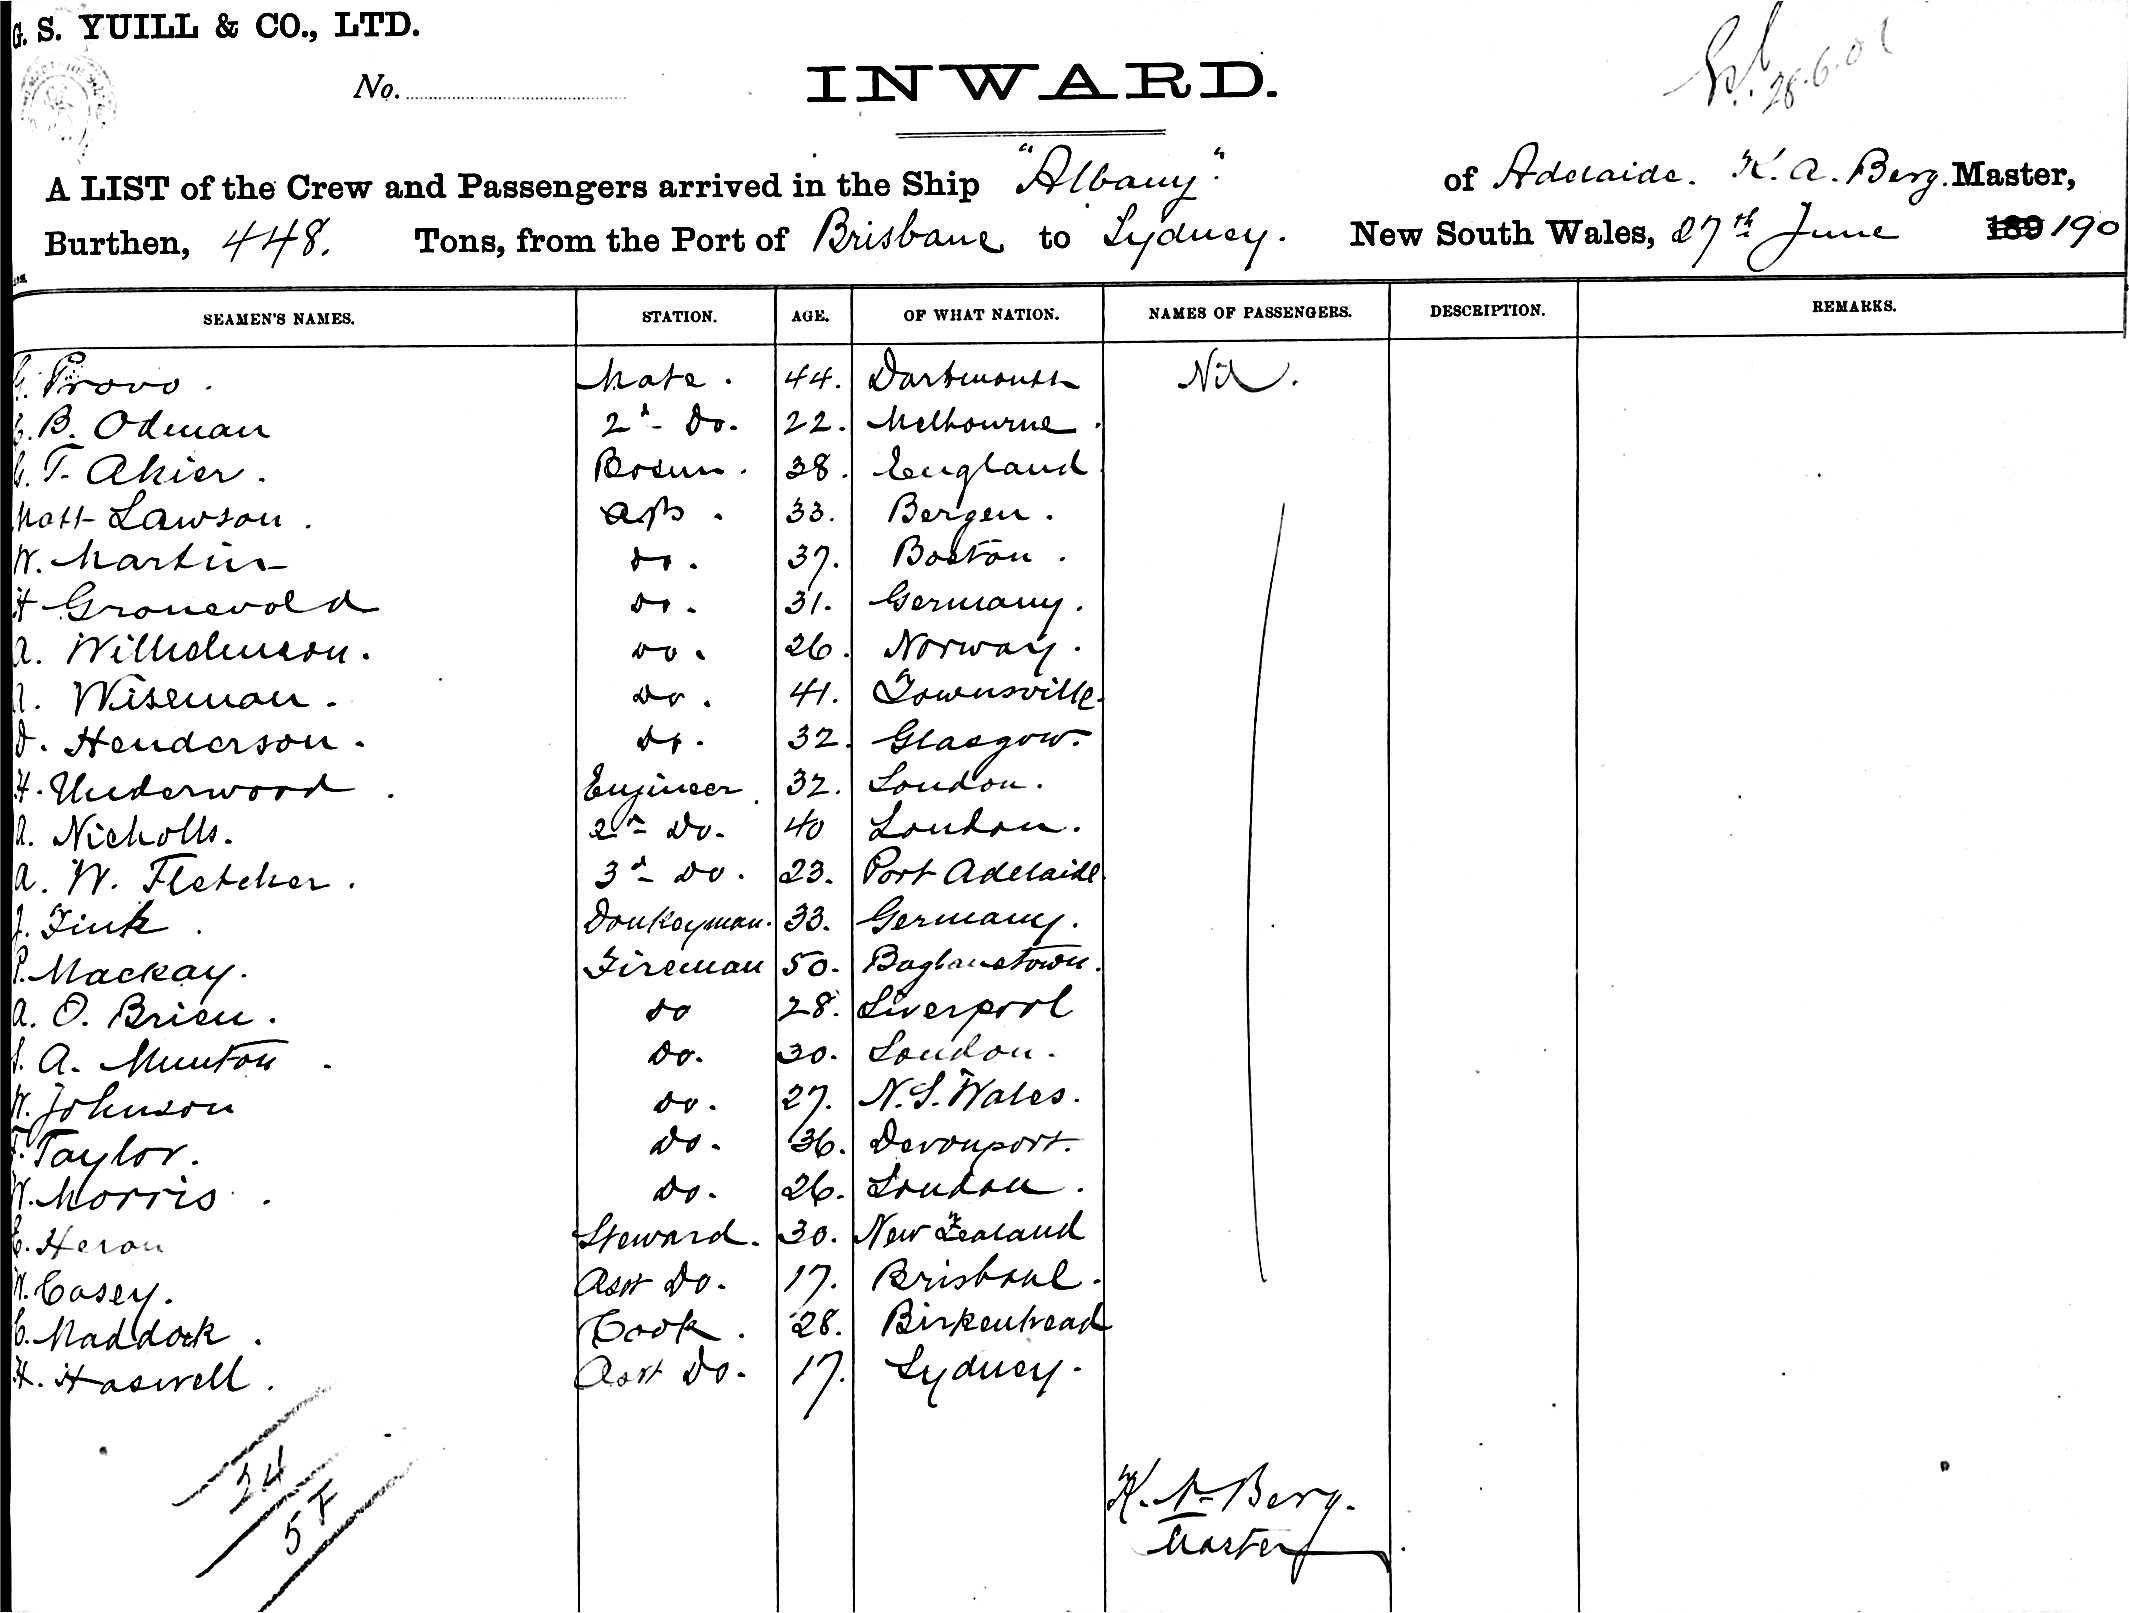 G. S. YUILL & CO., LTD.
No.
28.6.01
INWARD.
A LIST of the Crew and Passengers arrived in the Ship "Albany" of Adelaide. K. A. Berg. Master,
Burthen, 448. Tons, from the Port of Brisbane to Sydney. New South Wales, 27th June 189 190
SEAMEN'S NAMES. STATION. AGE. OF WHAT NATION. NAMES OF PASSENGERS. DESCRIPTION. REMARKS.
Provo. Mate. 44. Dartmouth Nil.
B. Odman 2d Do. 22. Melbourne.
T. Akier. Bosun. 38. England
Matt Lawson. AB. 33. Bergen.
W. Martin do. 37. Boston.
H Gronevold do. 31. Germany.
A. Wilhelmson. do. 26. Norway.
A. Wiseman. do. 41. Townsville.
D. Henderson. do. 32. Glasgow.
H. Underwood. Engineer. 32. London.
A. Nicholls. 2n Do. 40 London.
A. W. Fletcher. 3d Do. 23. Port Adelaide
J. Fink. Donkeyman. 33. Germany.
P. Mackay. Fireman 50. Baglanstown.
A. O. Brien. do 28. Liverpool
A. Munton. Do. 30. London.
W. Johnson do. 27. N. S. Wales.
F. Taylor. Do. 36. Devonport.
W. Morris. Do. 26. London.
E. Heron Steward. 30. New Zealand
W. Casey. Asst Do. 17. Brisbane.
C. Maddock. Cook. 28. Birkenhead
H. Haswell. Asst Do. 17. Sydney.
24
5 F
K. A. Berg.
Master